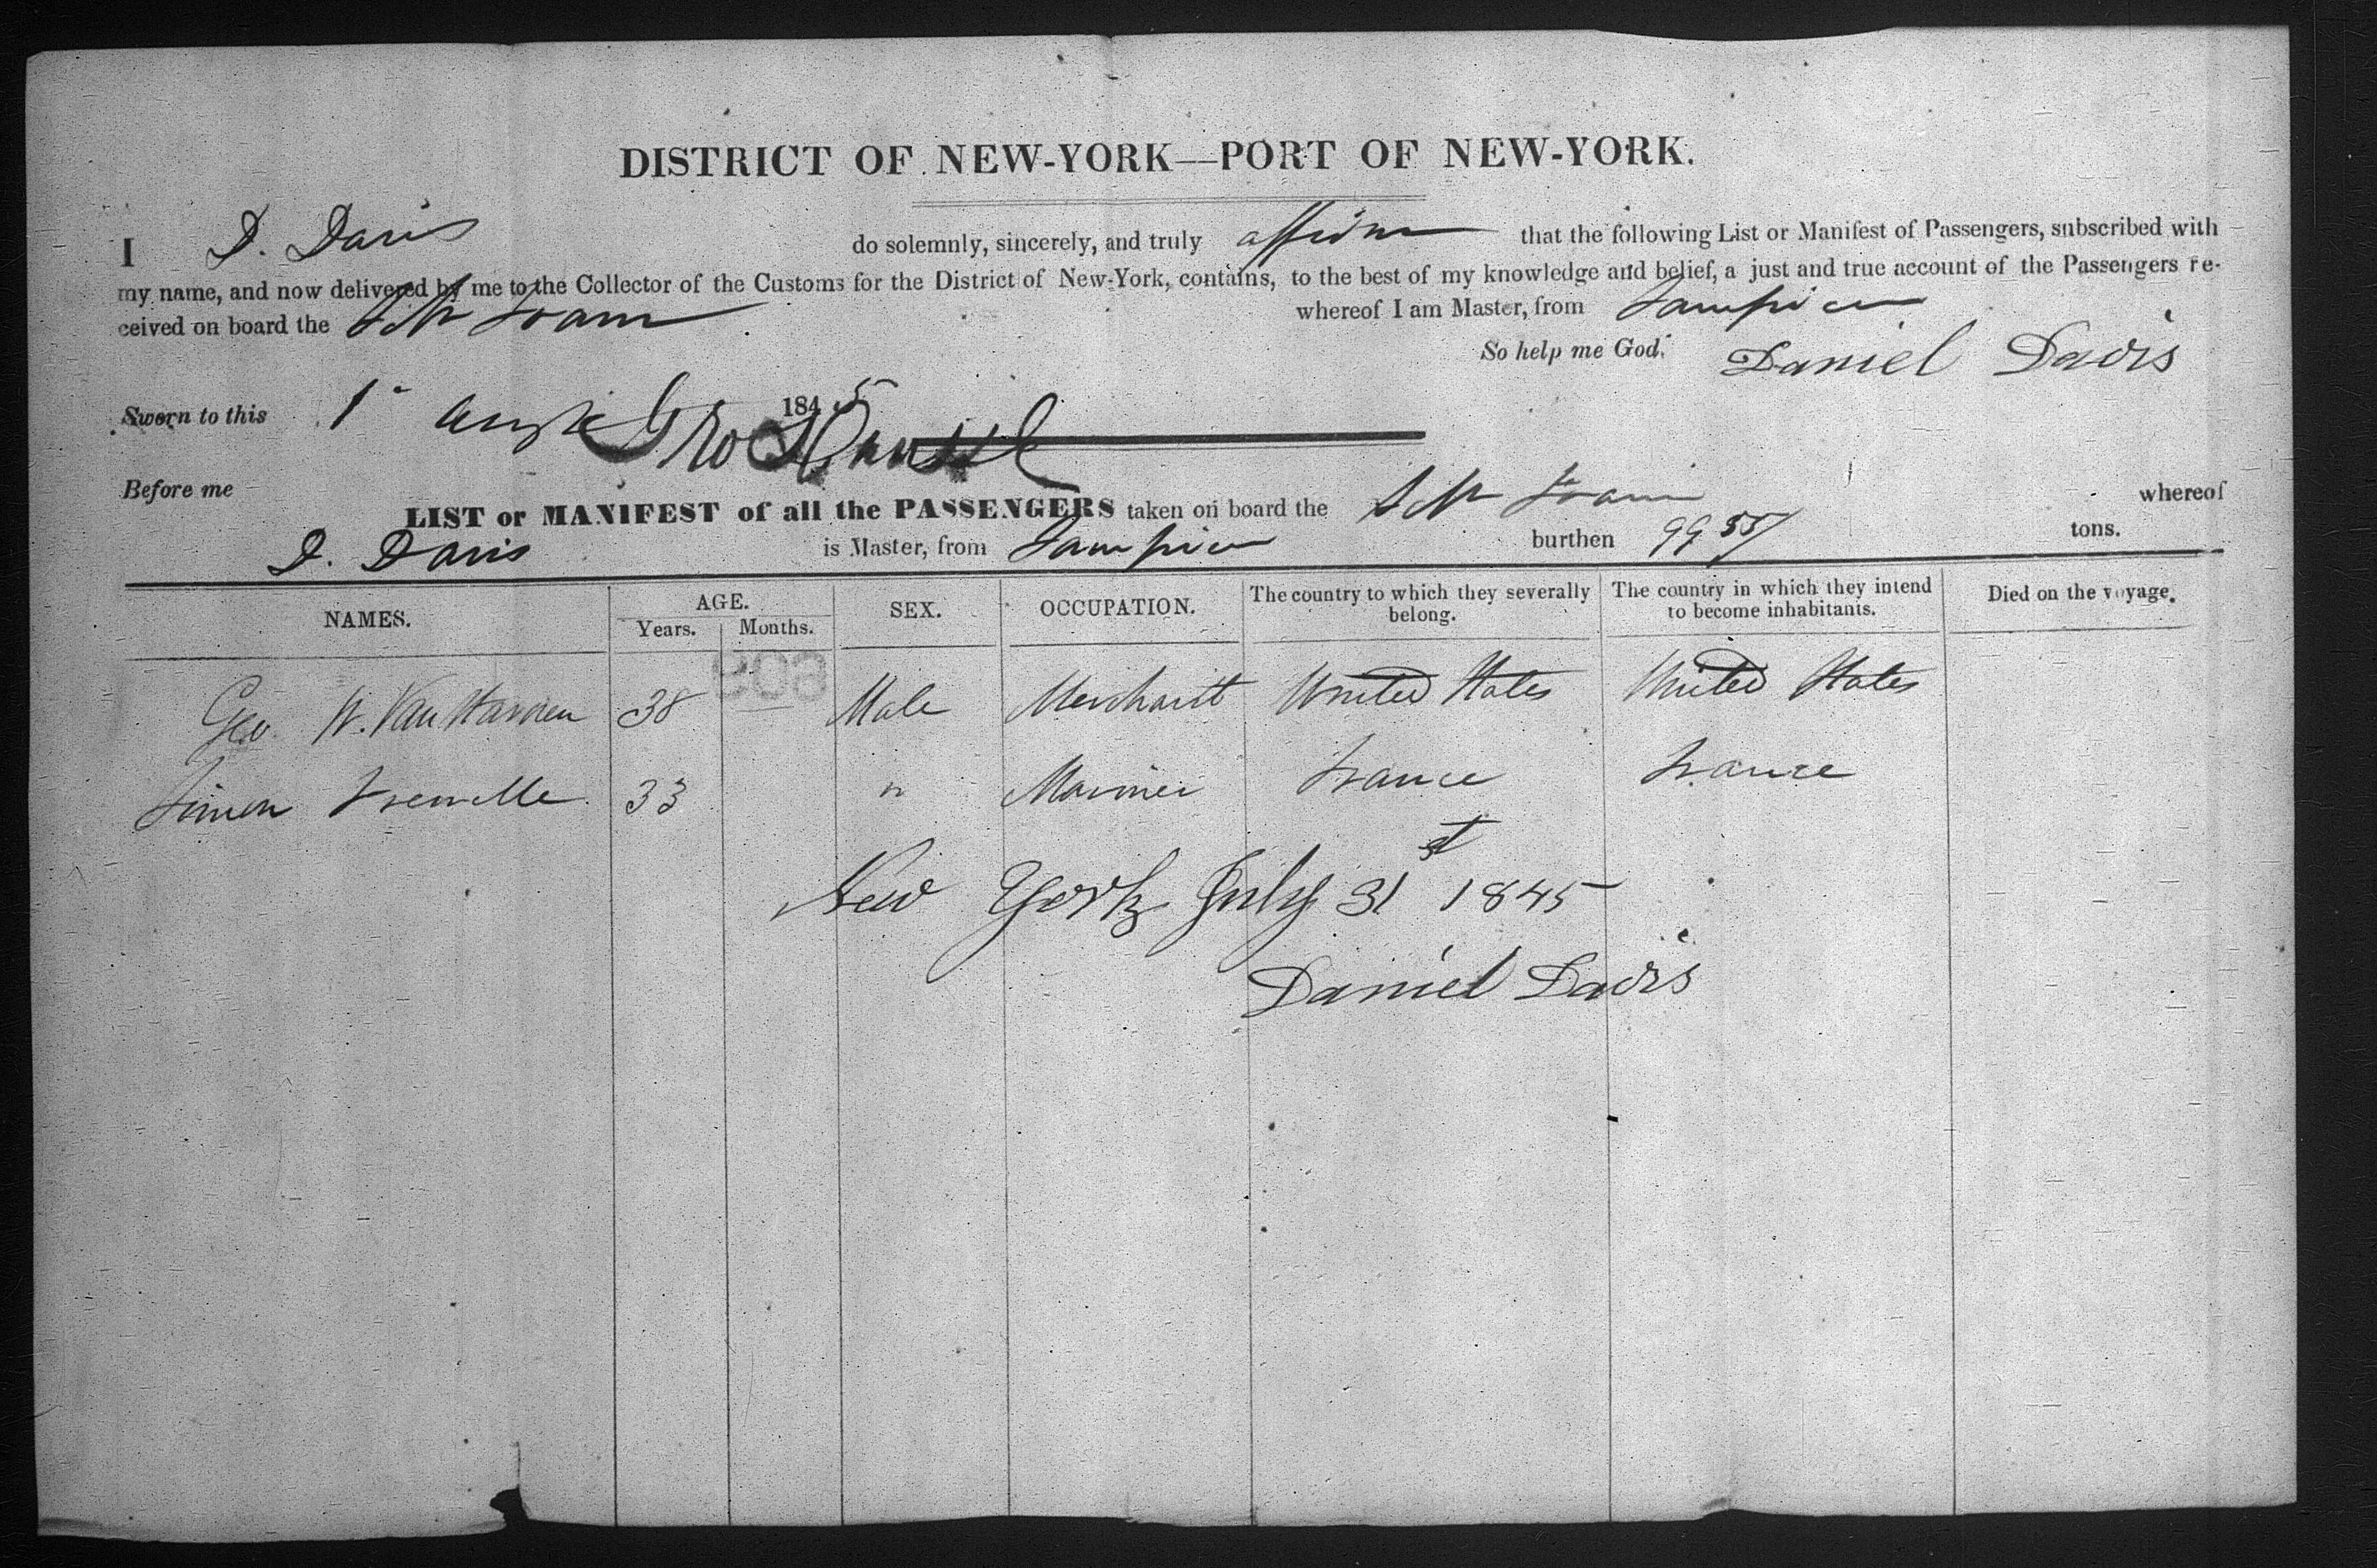 DISTRICT OF NEW-YORK—PORT OF NEW-YORK.
I D. Davis do solemnly, sincerely, and truly affirm that the following List or Manifest of Passengers, subscribed with
my name, and now delivered by me to the Collector of the Customs for the District of New-York, contains, to the best of my knowledge and belief, a just and true account of the Passengers re-
ceived on board the whereof I am Master, from Tampico
So help me God. Daniel Davis
Sworn to this 1st Augt 1845
Before me
LIST or MANIFEST of all the PASSENGERS taken on board the whereof
D. Davis is Master, from Tampico burthen 99 55/ tons.
NAMES. AGE. Years. Months. SEX. OCCUPATION. The country to which they severally belong. The country in which they intend to become inhabitants. Died on the voyage.
Geo. W. Van 38 Male Merchant United States United States
Simon 33 " Mariner France France
New York July 31st 1845
Daniel Davis